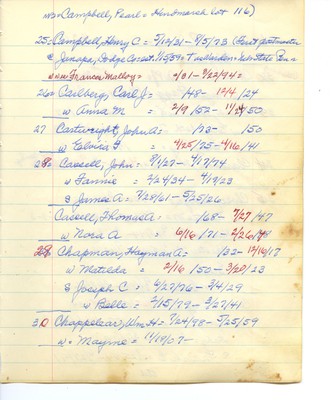 w3= Campbell, Pearl = Hindmarsh lot 116)
25= Campbell, Henry C. = 5/12/31 - 8/5/73 (First postmaster
& Jenapa, Dodge Co est. 1/5/59 = T warden = State Pen =
w w w Frances Malloy = 2/01 - 3/22/94 =
26= Carlberg, Carl J = 148 - 12/4/24
w Anna M = 2/9/52 - 11/24 50
27 Cartwright, John A = /73 - 150
w Elvira F 4/25/25 - 4/16/41
28= Cassell, John = 9/1/27 - 4/17/74
w Fannie = 2/24/34 - 4/19/23
S James A = 7/28/61 - 5/25/26
Cassell, Thomas A = 168 - 7/27/47
w Nora A = 6/16/71 - 2/26/48
29 Chapman, Hayman A = 132 - 12/16/17
w Matilda = 2/16/50 - 3/29/23
S Joseph C = 6/27/76 - 3/4/29
w Belle = 2/15/79 - 3/27/41
30 Chappelear, Wm H = 7/24/98 - 5/25/59
w = Mayme = 11/19/07 -